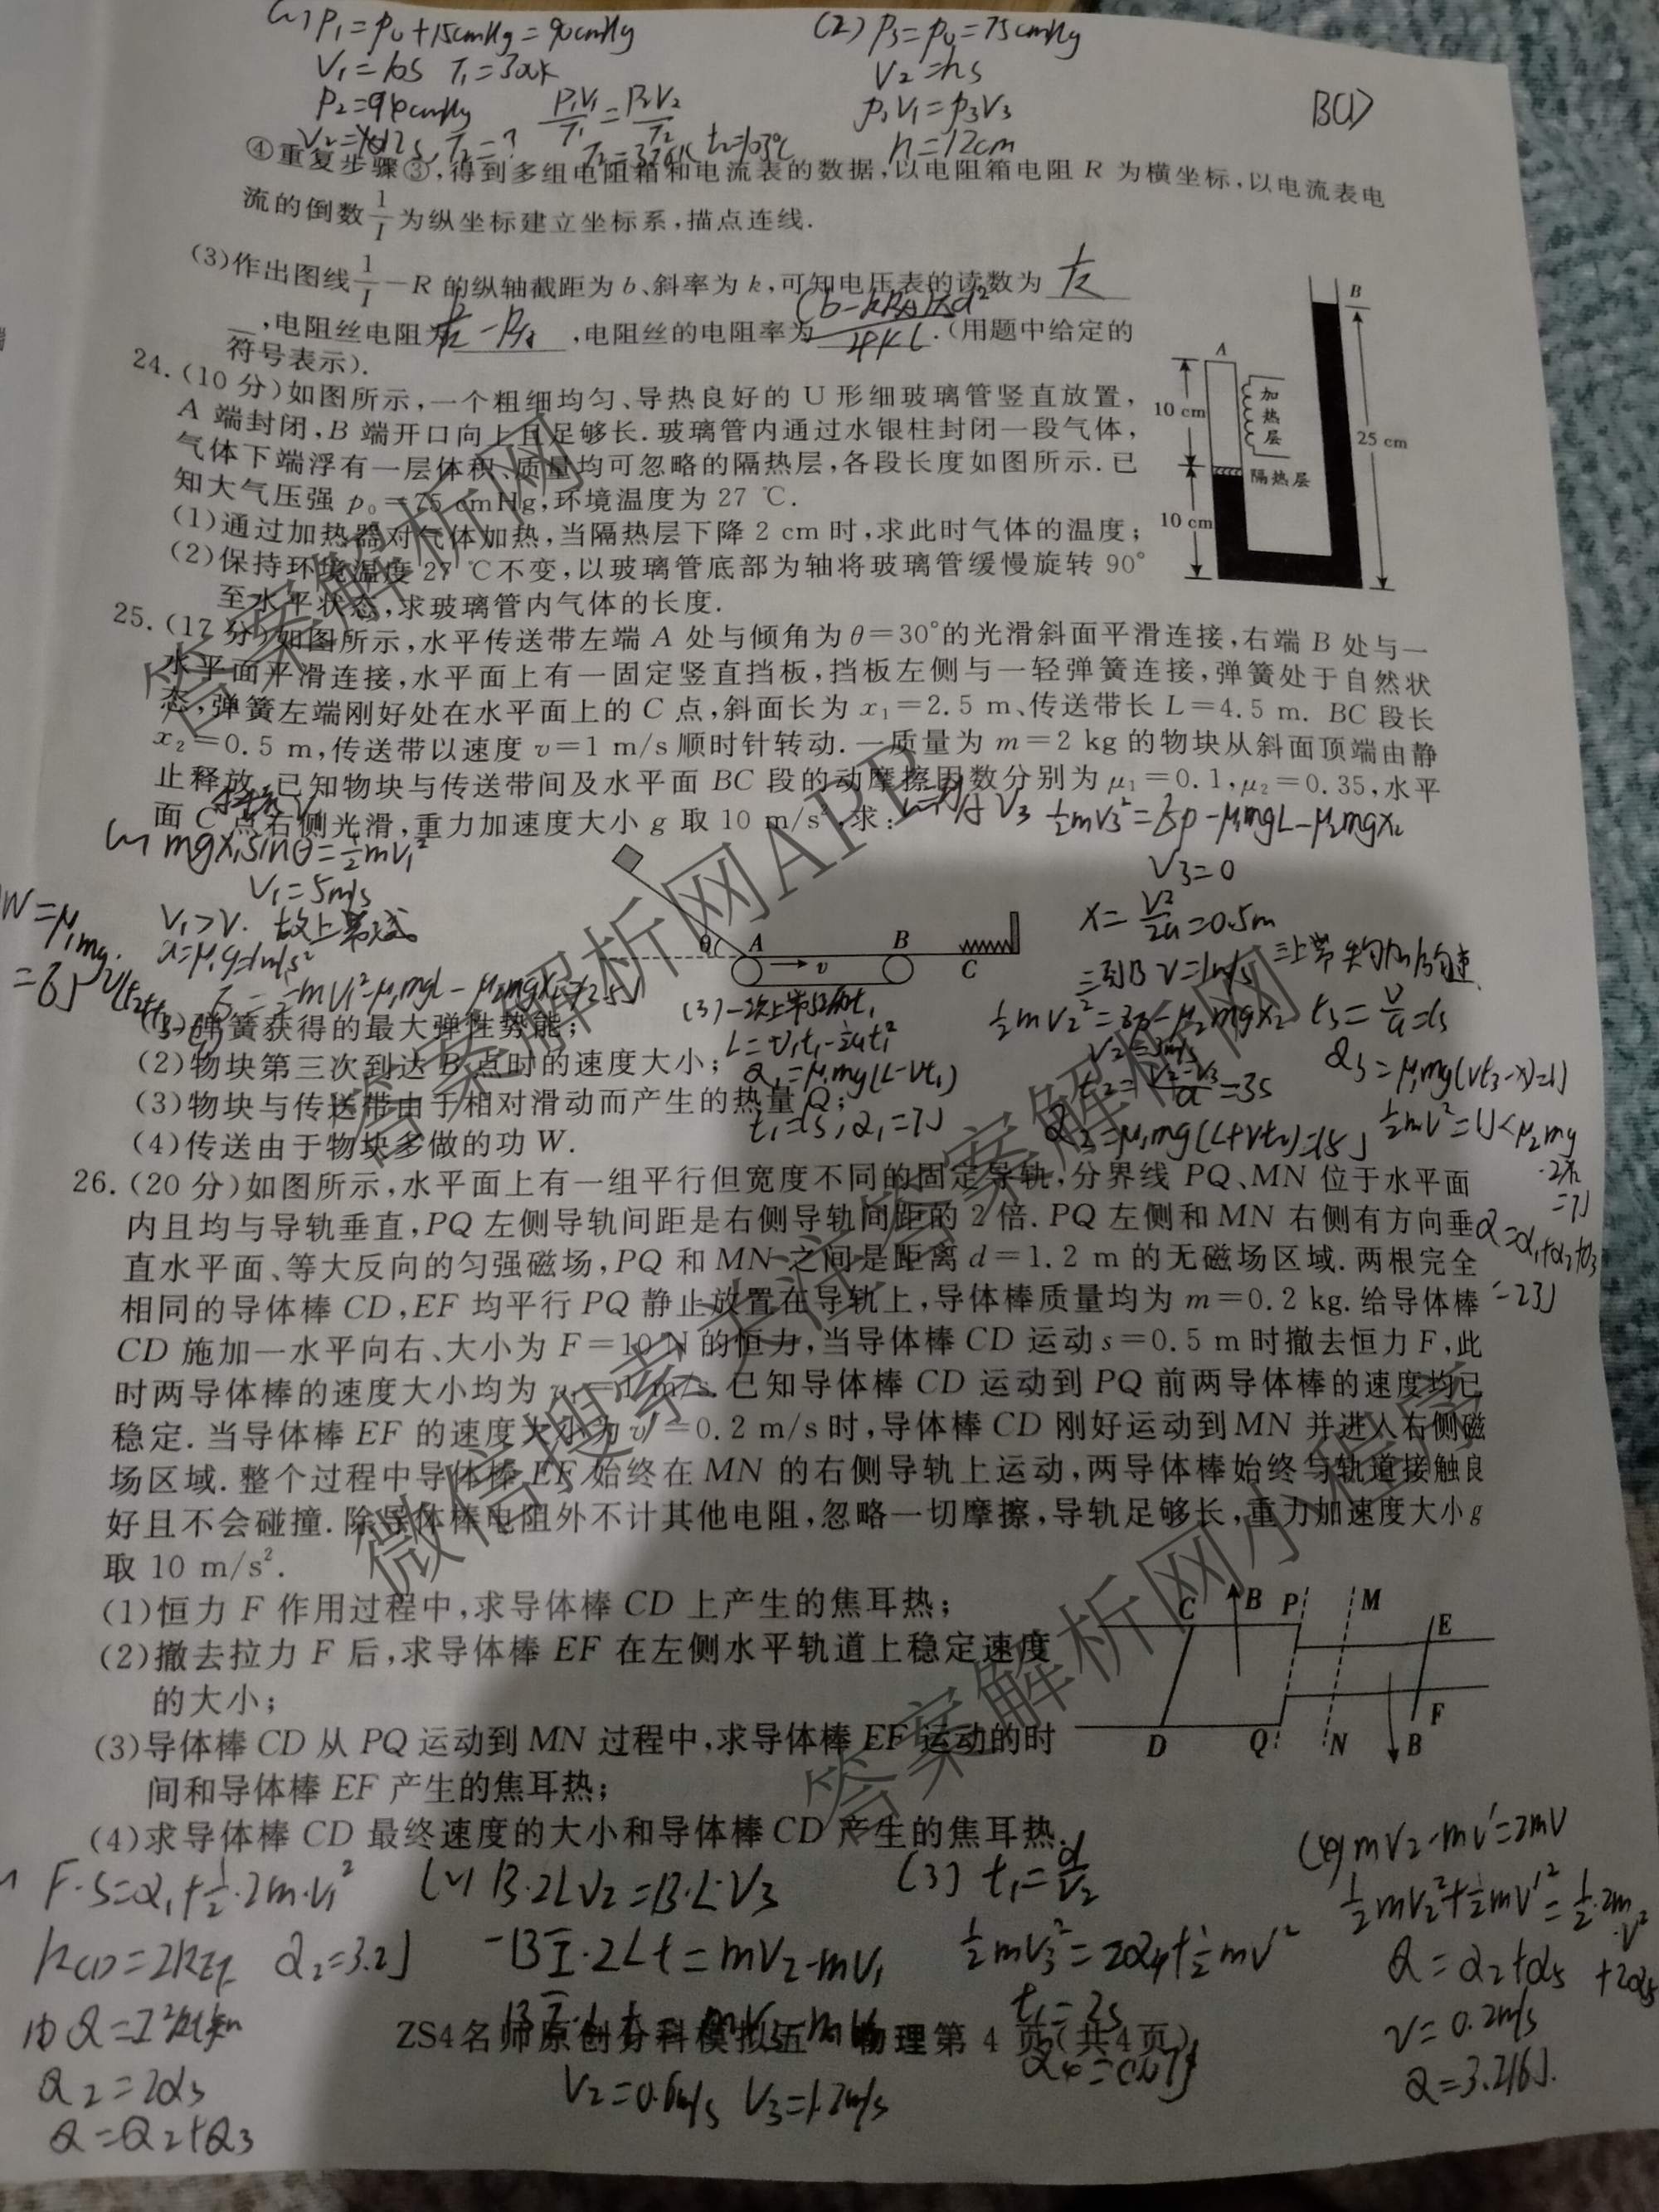 (1) P₁=P₀+15cmHg=90cmHg
V₁=10S T₁=300K
P₂=94cmHg P₁V₁/T₁=P₂V₂/T₂
(2) P₃=P₀=75cmHg
V₂=hS
P₁V₁=P₃V₃
h=12cm
B(1)
④重复步骤③,得到多组电阻箱和电流表的数据,以电阻箱电阻 R 为横坐标,以电流表电
流的倒数 1/I 为纵坐标建立坐标系,描点连线.
(3)作出图线 1/I -R 的纵轴截距为 b、斜率为 k,可知电压表的读数为 1/k
,电阻丝电阻为 b/k-RA ,电阻丝的电阻率为 (b-kRA)πd²/4kL .(用题中给定的
符号表示).
24.(10 分)如图所示,一个粗细均匀、导热良好的 U 形细玻璃管竖直放置,
A 端封闭,B 端开口向上且足够长.玻璃管内通过水银柱封闭一段气体,
气体下端浮有一层体积、质量均可忽略的隔热层,各段长度如图所示.已
知大气压强 p₀=75 cmHg,环境温度为 27 ℃.
(1)通过加热器对气体加热,当隔热层下降 2 cm 时,求此时气体的温度;
(2)保持环境温度 27 ℃不变,以玻璃管底部为轴将玻璃管缓慢旋转 90°
至水平状态,求玻璃管内气体的长度.
A
B
10 cm
加热层
25 cm
隔热层
10 cm
25.(17 分)如图所示,水平传送带左端 A 处与倾角为 θ=30°的光滑斜面平滑连接,右端 B 处与一
水平面平滑连接,水平面上有一固定竖直挡板,挡板左侧与一轻弹簧连接,弹簧处于自然状
态,弹簧左端刚好处在水平面上的 C 点,斜面长为 x₁=2.5 m、传送带长 L=4.5 m. BC 段长
x₂=0.5 m,传送带以速度 v=1 m/s 顺时针转动.一质量为 m=2 kg 的物块从斜面顶端由静
止释放,已知物块与传送带间及水平面 BC 段的动摩擦因数分别为 μ₁=0.1,μ₂=0.35,水平
面 C 点右侧光滑,重力加速度大小 g 取 10 m/s²,求:
½mV₃²=Ep-μ₁mgL-μ₂mgx₂
(1) mgx₁sinθ=½mV₁²
V₃=0
V₁=5m/s
V₁>V.
a=μ₁g=1m/s²
x=V²/2a=0.5m
θ A B C v
(1)弹簧获得的最大弹性势能;
(2)物块第三次到达 B 点时的速度大小;
(3)物块与传送带由于相对滑动而产生的热量 Q;
(4)传送由于物块多做的功 W.
L=V₁t₁-½at₁²
Q₁=μ₁mg(L-Vt₁)
t₁=1s,Q₁=7J
½mV₂²=Ep-μ₂mgx₂
V₂=3m/s
t₂=(V₂-V₃)/a=3s
Q₂=μ₁mg(L+Vt₂)=15J
t₃=V/a=1s
Q₃=μ₁mg(Vt₃-x)=1J
Q=Q₁+Q₂+Q₃
=23J
26.(20 分)如图所示,水平面上有一组平行但宽度不同的固定导轨,分界线 PQ、MN 位于水平面
内且均与导轨垂直,PQ 左侧导轨间距是右侧导轨间距的 2 倍.PQ 左侧和 MN 右侧有方向垂
直水平面、等大反向的匀强磁场,PQ 和 MN 之间是距离 d=1.2 m 的无磁场区域.两根完全
相同的导体棒 CD,EF 均平行 PQ 静止放置在导轨上,导体棒质量均为 m=0.2 kg.给导体棒
CD 施加一水平向右、大小为 F=10 N 的恒力,当导体棒 CD 运动 s=0.5 m 时撤去恒力 F,此
时两导体棒的速度大小均为 v₁=1 m/s.已知导体棒 CD 运动到 PQ 前两导体棒的速度均已
稳定.当导体棒 EF 的速度大小为 v′=0.2 m/s 时,导体棒 CD 刚好运动到 MN 并进入右侧磁
场区域.整个过程中导体棒 EF 始终在 MN 的右侧导轨上运动,两导体棒始终与轨道接触良
好且不会碰撞.除导体棒电阻外不计其他电阻,忽略一切摩擦,导轨足够长,重力加速度大小 g
取 10 m/s².
(1)恒力 F 作用过程中,求导体棒 CD 上产生的焦耳热;
(2)撤去拉力 F 后,求导体棒 EF 在左侧水平轨道上稳定速度
的大小;
(3)导体棒 CD 从 PQ 运动到 MN 过程中,求导体棒 EF 运动的时
间和导体棒 EF 产生的焦耳热;
(4)求导体棒 CD 最终速度的大小和导体棒 CD 产生的焦耳热.
C B P M E
D Q N B F
F·S=Q₁+½·2m·V₁²
RCD=2REF Q₂=3.2J
Q₂=2Q₃
Q=Q₂+Q₃
(2) B·2LV₂=B·L·V₃
-BI·2Lt=mV₂-mV₁
V₂=0.6m/s V₃=1.2m/s
(3) t₁=d/V₂
½mV₃²=2Q₄+½mV′²
t₁=2s
(4) mV₂-mV′=2mV
½mV₂²+½mV′²=½·2m·V²+2Q₅
Q=Q₂+Q₅
V=0.2m/s
Q=3.216J.
ZS4名师原创分科模拟五 物理第 4 页(共4页)
答案解析网
答案解析网APP
微信搜索关注答案解析网
答案解析网小程序